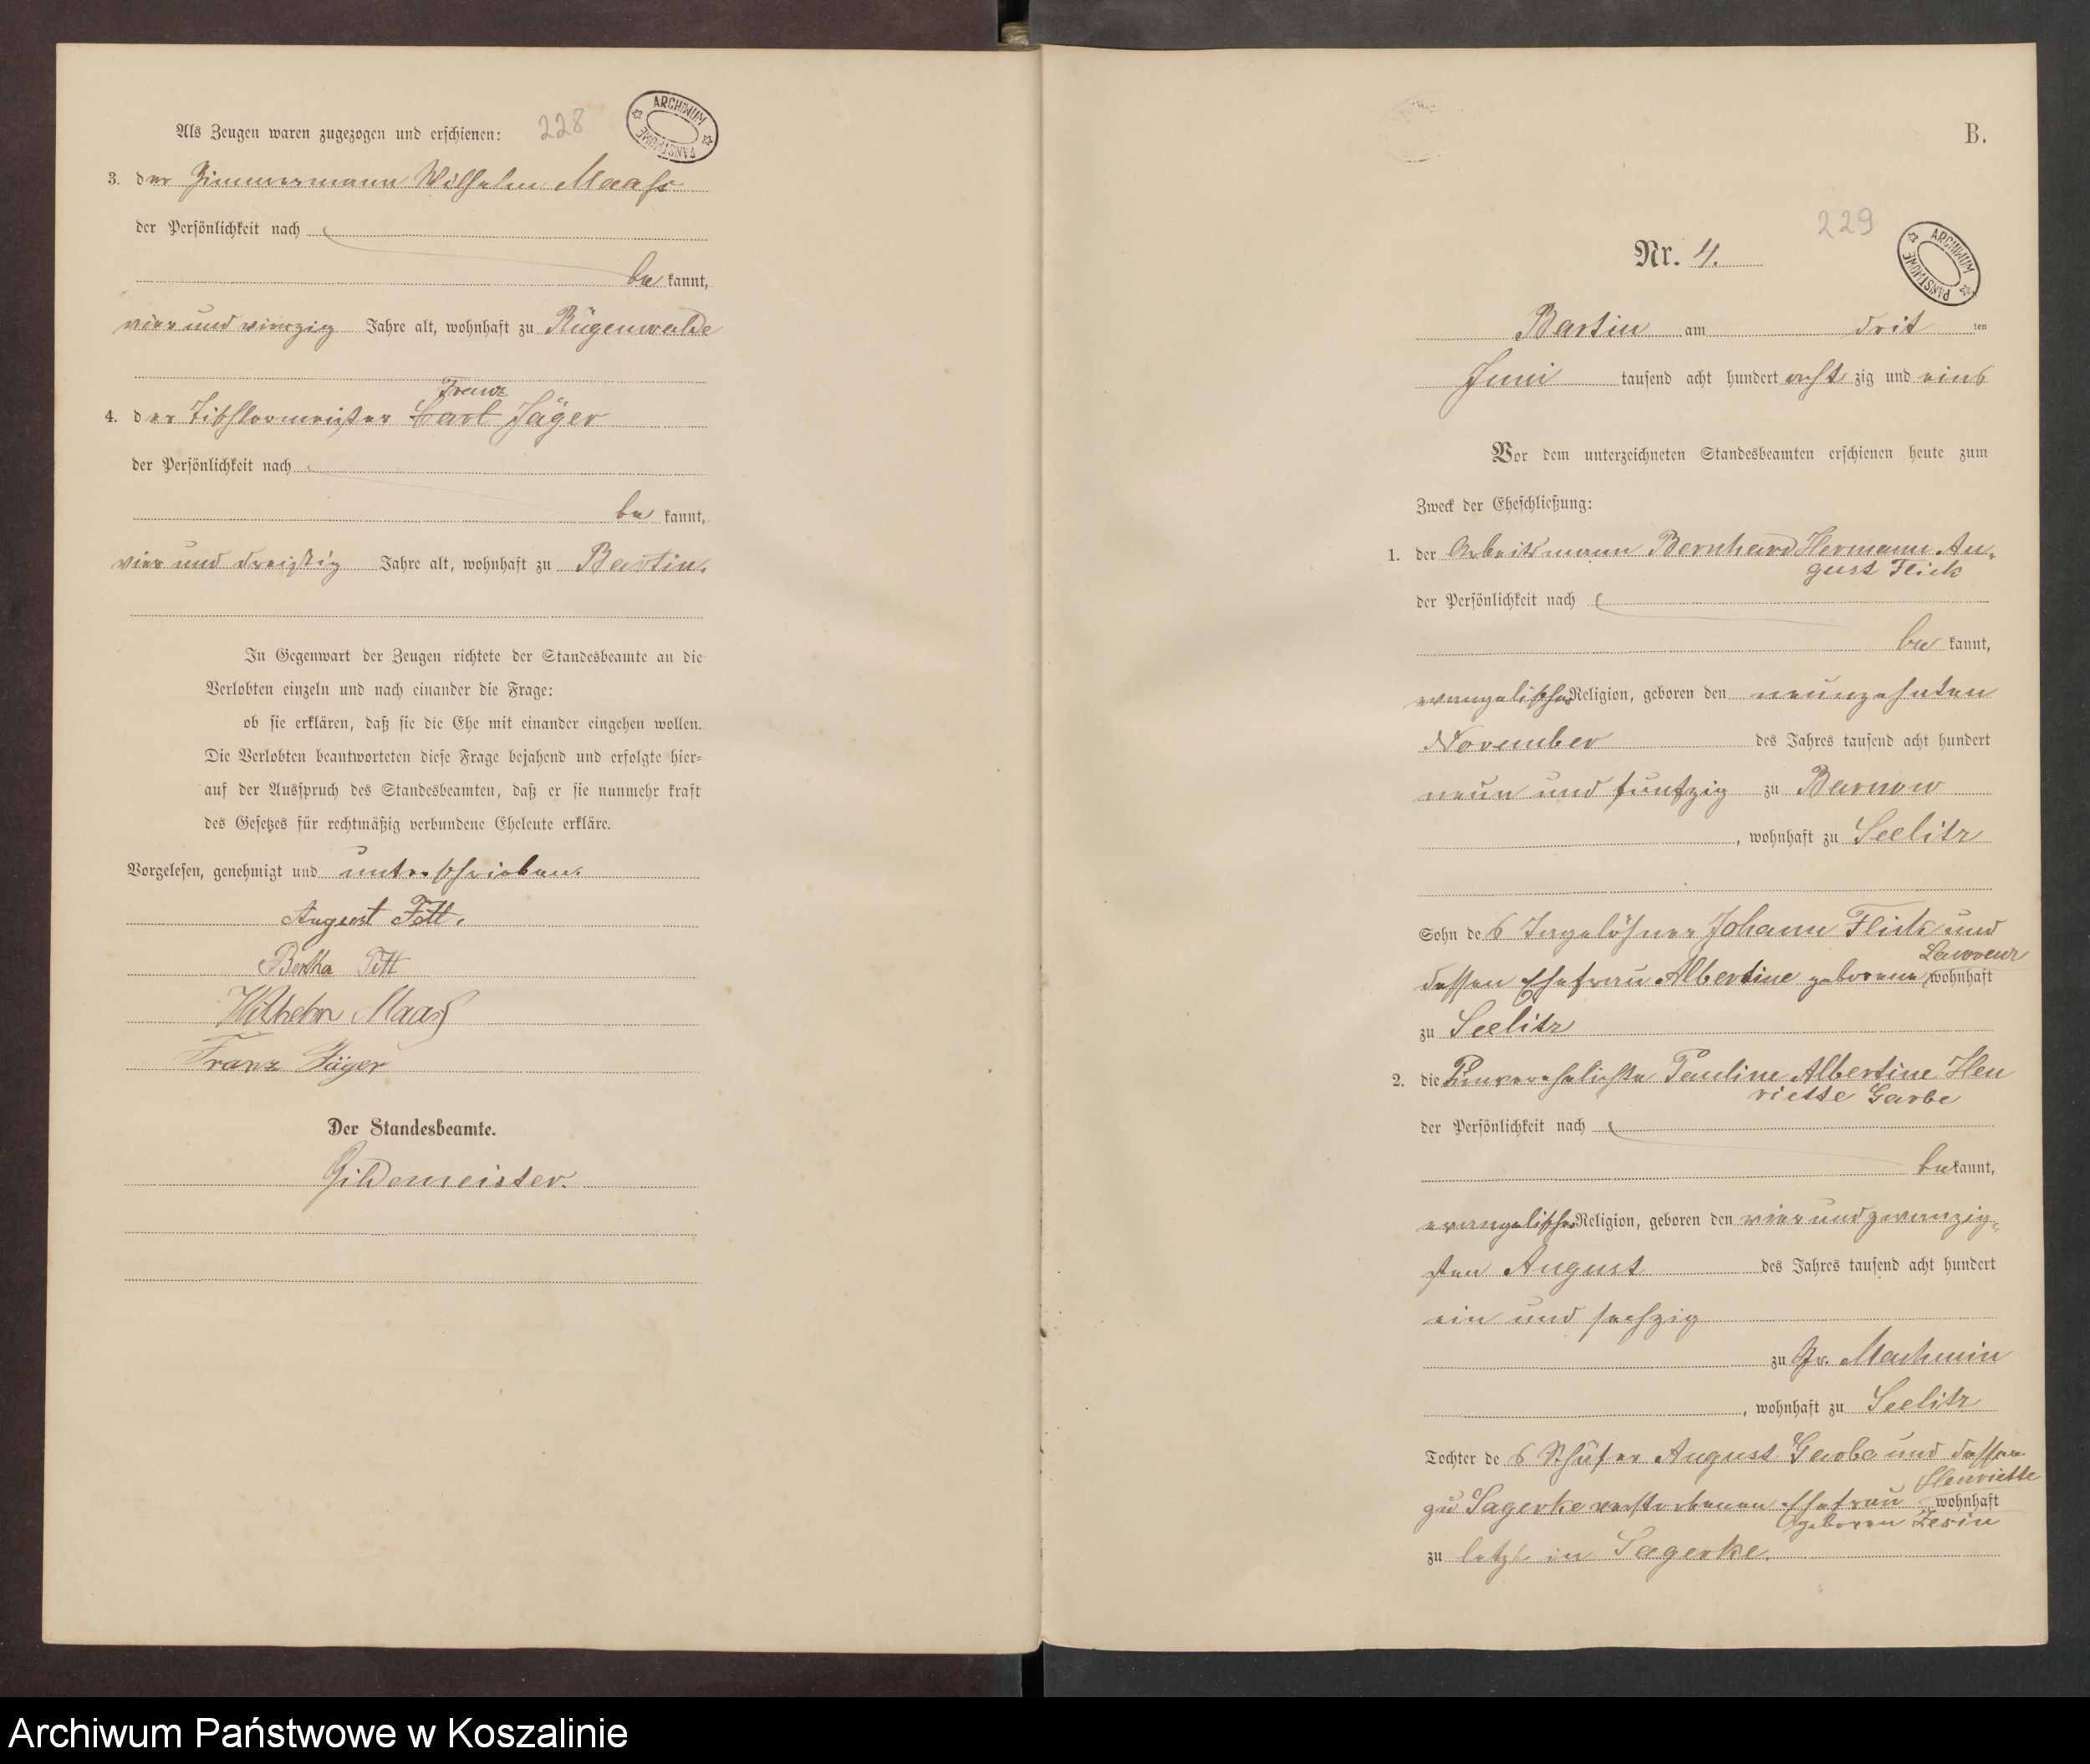 Als Zeugen waren zugezogen und erschienen:
228
ARCHIWUM PAŃSTWOWE
3. der Zimmermann Wilhelm Maaß
der Persönlichkeit nach
be kannt,
vier und vierzig Jahre alt, wohnhaft zu Rügenwalde
Franz
4. der Tischlermeister Carl Jäger
der Persönlichkeit nach
be kannt,
vier und dreißig Jahre alt, wohnhaft zu Bartin.
In Gegenwart der Zeugen richtete der Standesbeamte an die
Verlobten einzeln und nach einander die Frage:
ob sie erklären, daß sie die Ehe mit einander eingehen wollen.
Die Verlobten beantworteten diese Frage bejahend und erfolgte hier-
auf der Ausspruch des Standesbeamten, daß er sie nunmehr kraft
des Gesetzes für rechtmäßig verbundene Eheleute erkläre.
Vorgelesen, genehmigt und unterschrieben.
August
Bertha
Wilhelm Maaß
Franz Jäger
Der Standesbeamte.
Gildemeister.
B.
229
ARCHIWUM PAŃSTWOWE
Nr. 4.
Bartin am drit ten
Juni tausend acht hundert acht zig und eins
Vor dem unterzeichneten Standesbeamten erschienen heute zum
Zweck der Eheschließung:
1. der Arbeitsmann Bernhard Hermann Au-
gust Flick
der Persönlichkeit nach
be kannt,
evangelischer Religion, geboren den neunzehnten
November des Jahres tausend acht hundert
neun und funfzig zu Barnow
, wohnhaft zu Seelitz
Sohn des Tagelöhner Johann Flick und
dessen Ehefrau Albertine geborene wohnhaft
zu Seelitz
2. die Unverehelichte Pauline Albertine Hen
riette Garbe
der Persönlichkeit nach
be kannt,
evangelischer Religion, geboren den vier und zwanzig-
sten August des Jahres tausend acht hundert
ein und sechzig
zu Gr. Machmin
, wohnhaft zu Seelitz
Tochter des Schäfer August Garbe und dessen
zu Sagerke verstorbenen Ehefrau Henriette wohnhaft
geboren Zesin
zu letzt in Sagerke.
Archiwum Państwowe w Koszalinie